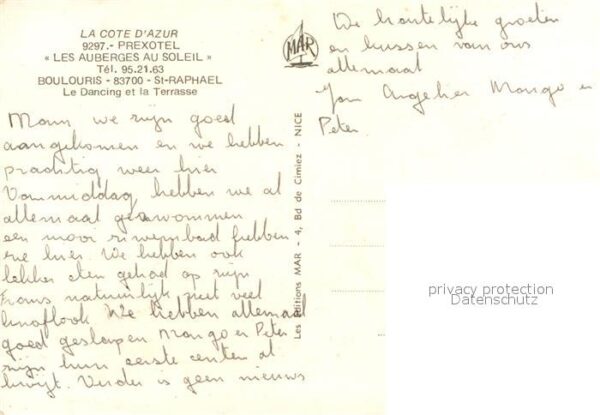 LA COTE D'AZUR
9297.- PREXOTEL
« LES AUBERGES AU SOLEIL »
Tél. 95.21.63
BOULOURIS - 83700 - St-RAPHAEL
Le Dancing et la Terrasse
Mam we zijn goed
aangekomen en we hebben
prachtig weer hier
Vanmiddag hebben we al
allemaal gezwommen
een mooi zwembad hebben
we hier. We hebben ook
lekker eten gehad op zijn
Frans natuurlijk met veel
knoflook We hebben allemaal
goed geslapen Mango en Peter
zijn hun eerste centen al
kwijt. Verder is geen nieuws
MAR
Les Editions MAR - 4, Bd de Cimiez - NICE
De hartelijke groeten
en kussen van ons
allemaal
Jan Angelien Mango en
Peter
privacy protection
Datenschutz